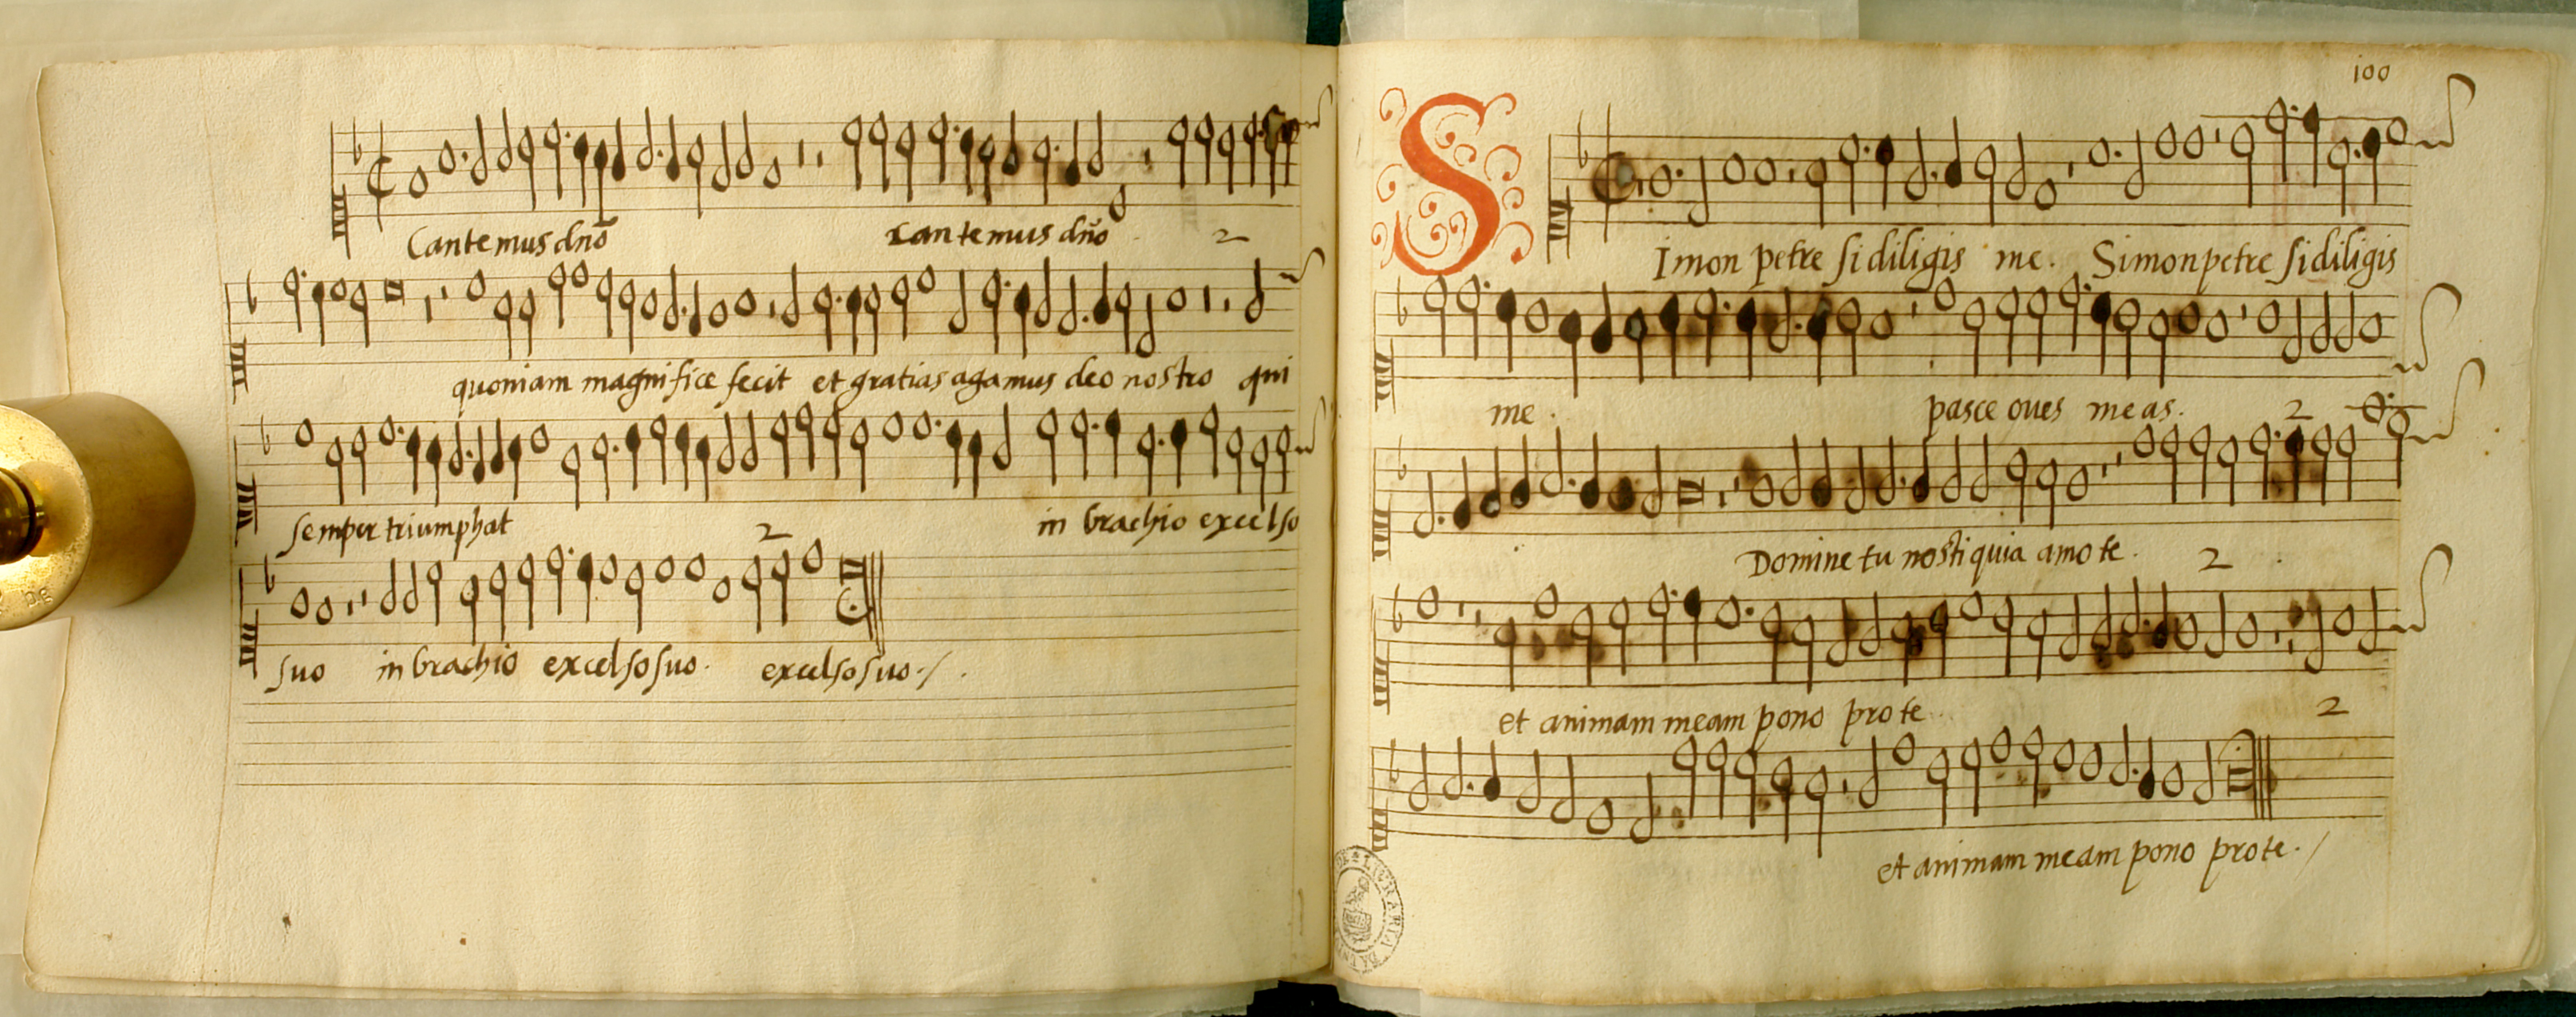 Cantemus dnō Cantemus dño 2
quoniam magnifice fecit et gratias agamus deo nostro qui
semper triumphat 2 in brachio excelso
suo in brachio excelso suo. excelso suo./.
100
Simon petre si diligis me. Simon petre si diligis
me. pasce oves meas. 2
Domine tu nosti quia amo te. 2
et animam meam pono pro te 2
et animam meam pono pro te./
LIVRARIA